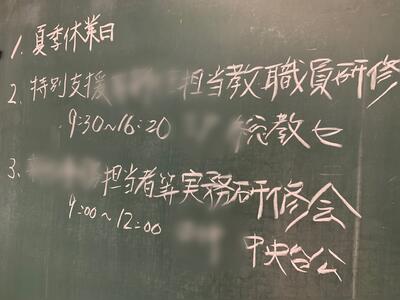 1. 夏季休業日
2. 特別支援 担当教職員研修
9:30~16:20 総教セ
3. 担当者等実務研修会
9:00~12:00
中央台公